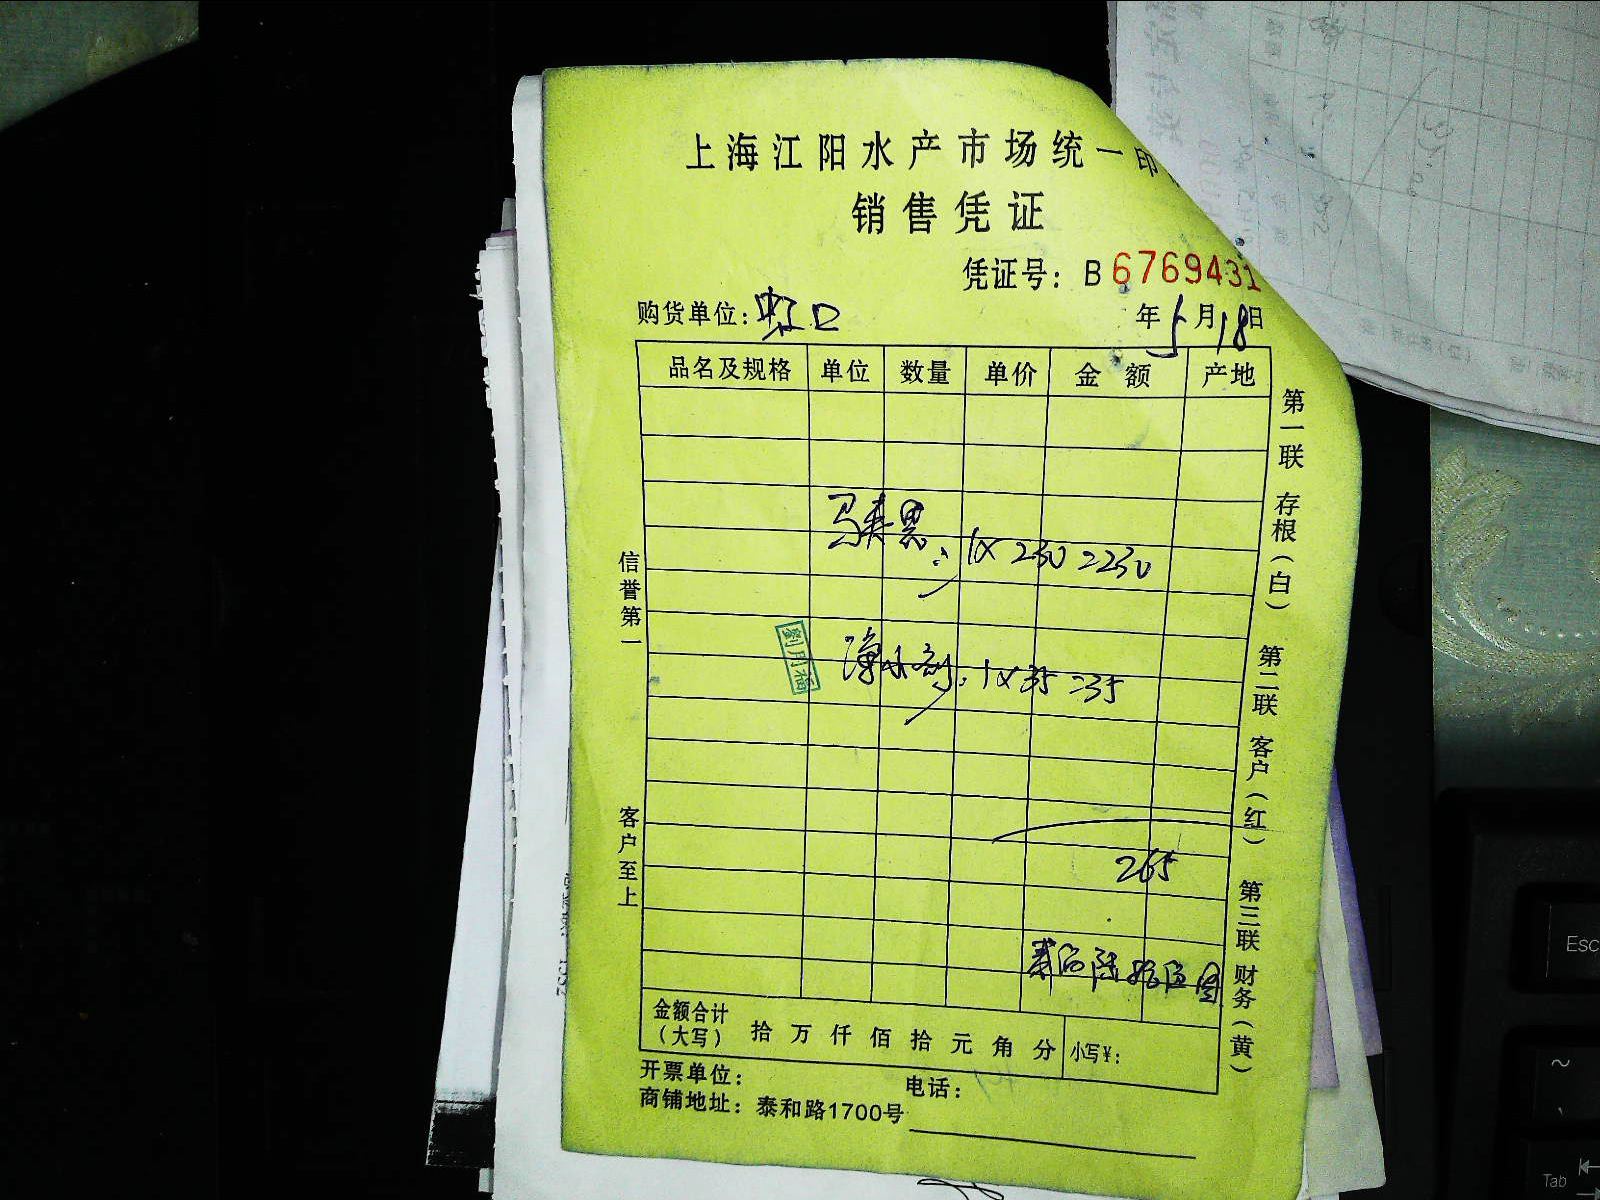 上海江阳水产市场统一印
销售凭证
凭证号：B 6769431
购货单位：虹口 年5月18日
品名及规格 单位 数量 单价 金额 产地
1X230=230
劉用福
1X35=35
265
金额合计（大写） 拾万仟佰拾元角分 小写¥：
开票单位： 电话：
商铺地址：泰和路1700号
信誉第一 客户至上
第一联 存根（白） 第二联 客户（红） 第三联 财务（黄）
Esc
~
Tab